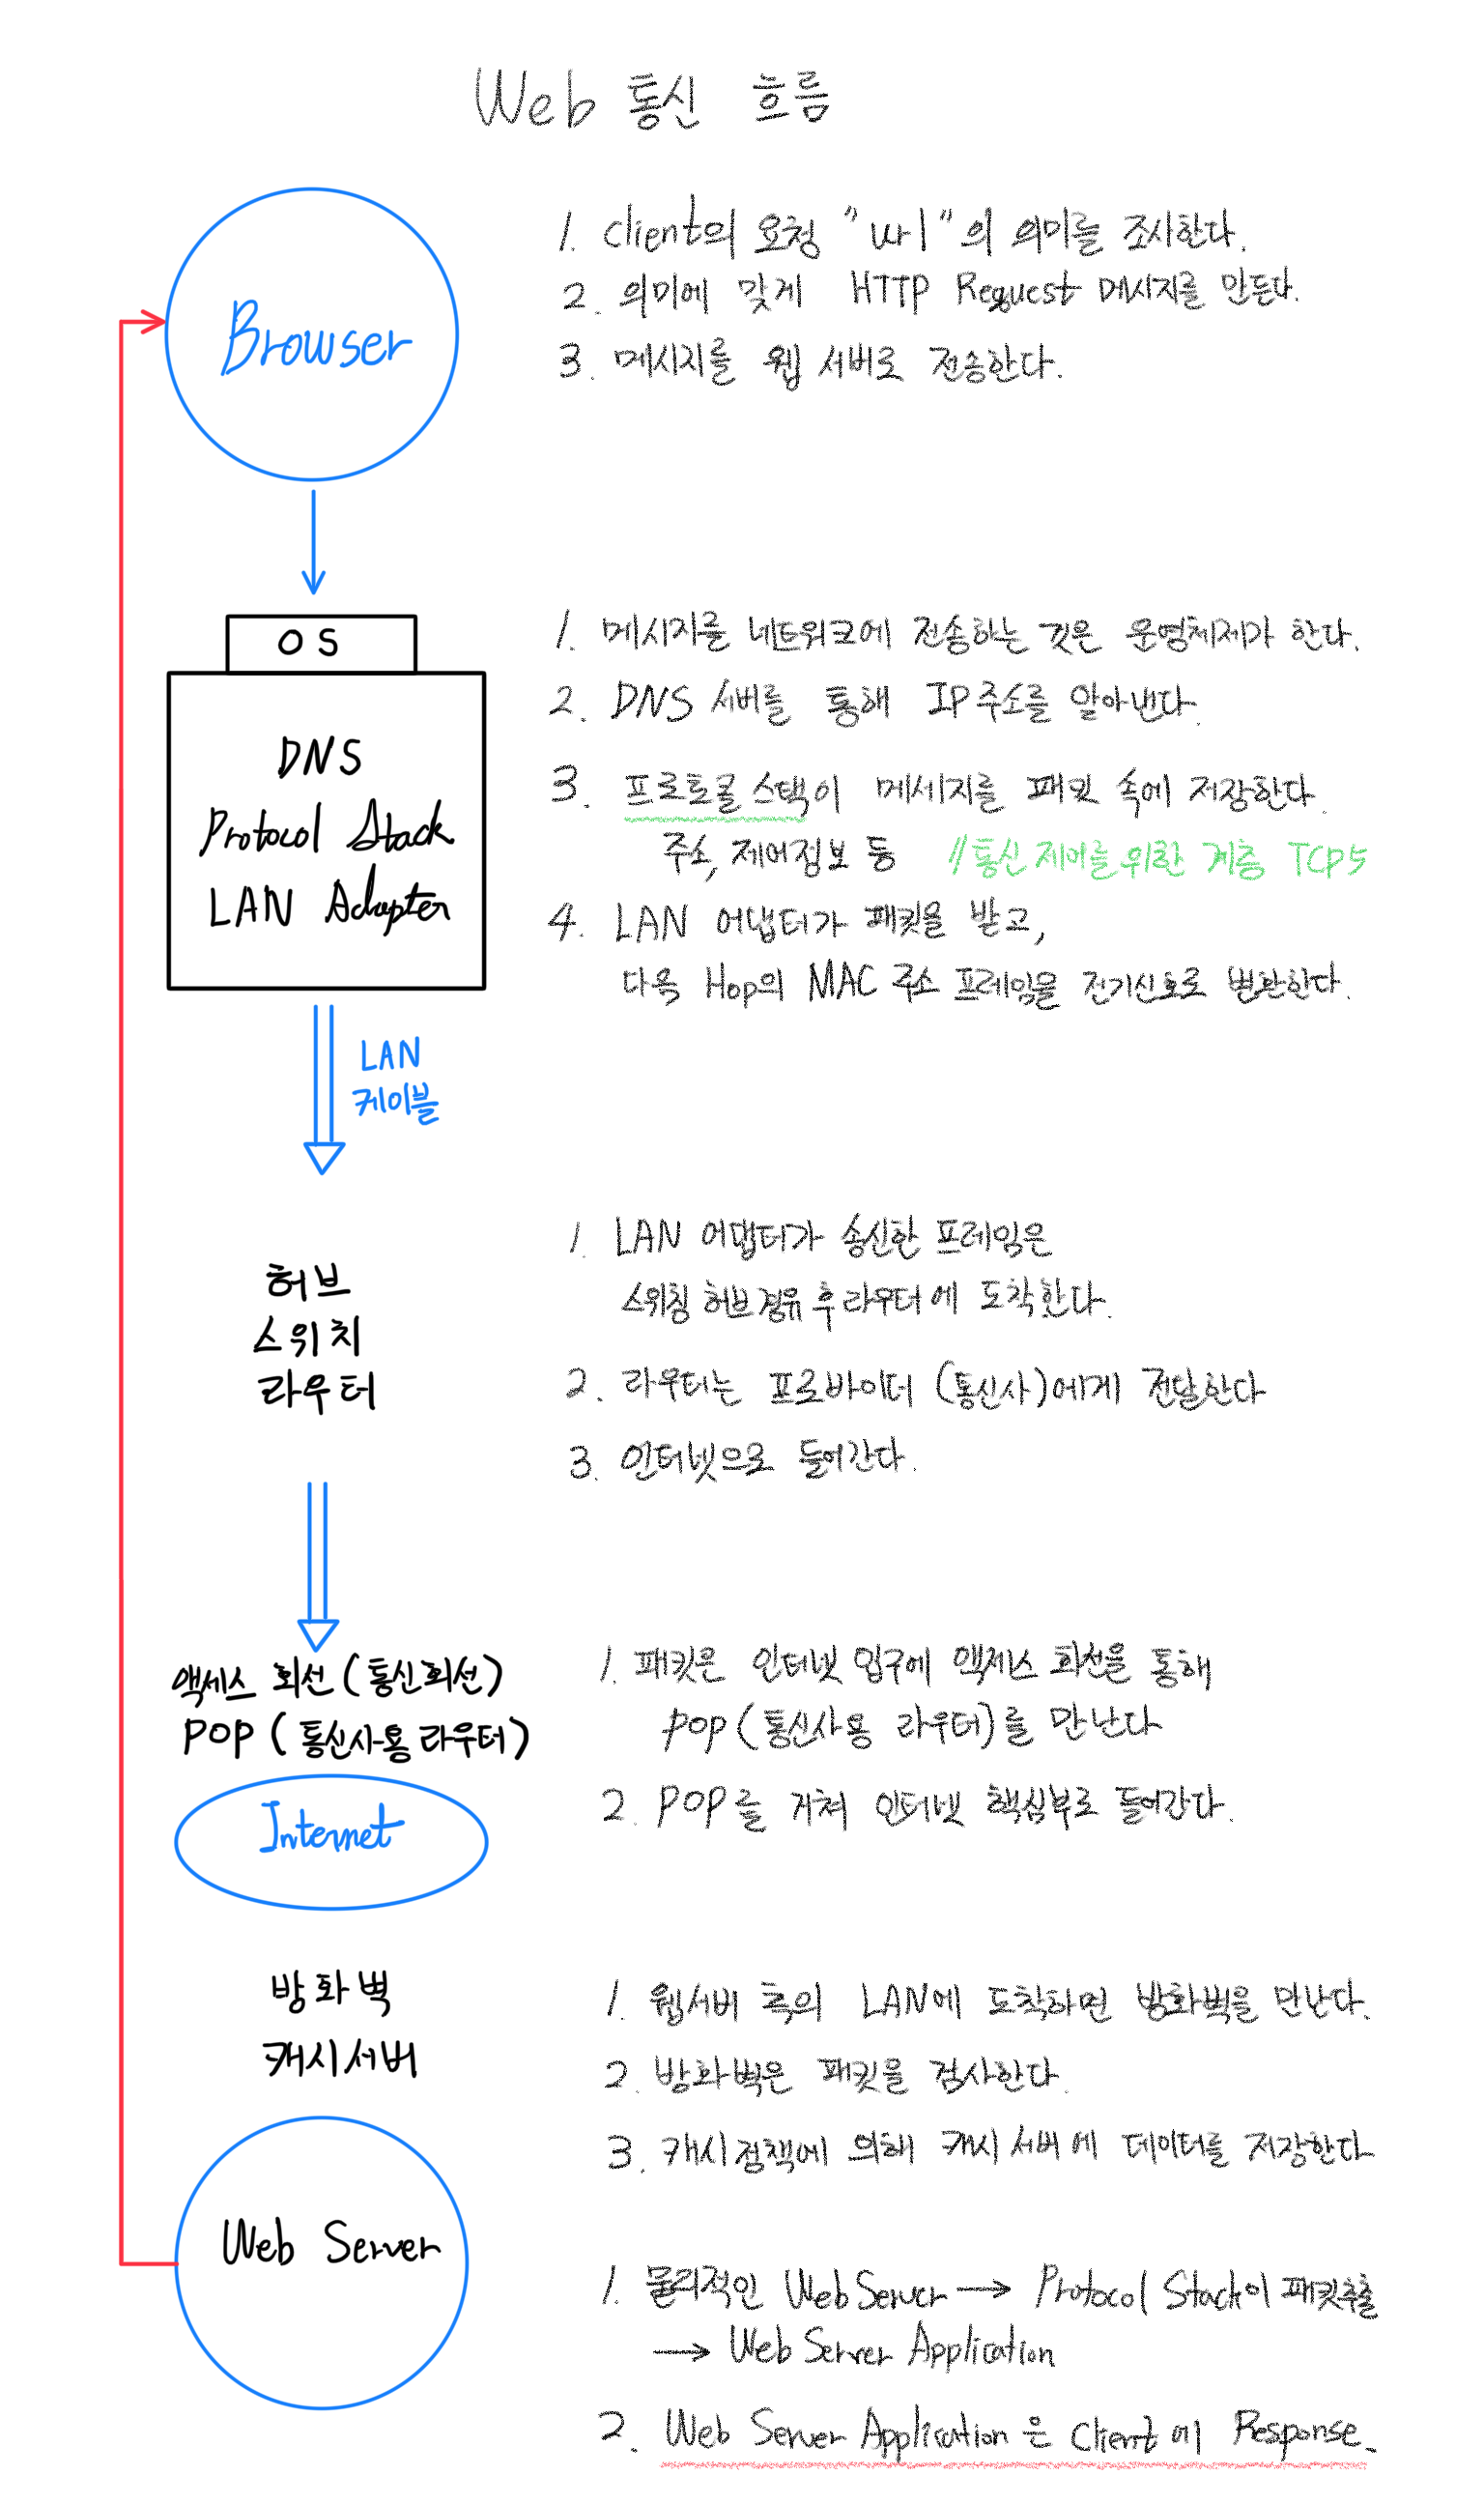 Web 통신 흐름
Browser
1. client의 요청 "url"의 의미를 조사한다.
2. 의미에 맞게 HTTP Request 메시지를 만든다.
3. 메시지를 웹 서버로 전송한다.
OS
DNS
Protocol Stack
LAN Adapter
1. 메시지를 네트워크에 전송하는 것은 운영체제가 한다.
2. DNS 서버를 통해 IP주소를 알아낸다.
3. 프로토콜 스택이 메세지를 패킷 속에 저장한다.
주소, 제어정보 등 //통신 제어를 위한 계층 TCP5
4. LAN 어댑터가 패킷을 받고,
다음 Hop의 MAC 주소 프레임을 전기신호로 변환한다.
LAN
케이블
허브
스위치
라우터
1. LAN 어댑터가 송신한 프레임은
스위칭 허브 경유 후 라우터에 도착한다.
2. 라우터는 프로바이더 (통신사)에게 전달한다
3. 인터넷으로 들어간다.
액세스 회선 (통신회선)
POP (통신사용 라우터)
Internet
1. 패킷은 인터넷 입구에 액세스 회선을 통해
pop (통신사용 라우터)를 만난다
2. POP를 거쳐 인터넷 핵심부로 들어간다.
방화벽
캐시서버
1. 웹서버 측의 LAN에 도착하면 방화벽을 만난다.
2. 방화벽은 패킷을 검사한다.
3. 캐시정책에 의해 캐시 서버에 데이터를 저장한다
Web Server
1. 물리적인 Web Server → Protocol Stack이 패킷추출
→ Web Server Application
2. Web Server Application은 Client에 Response.